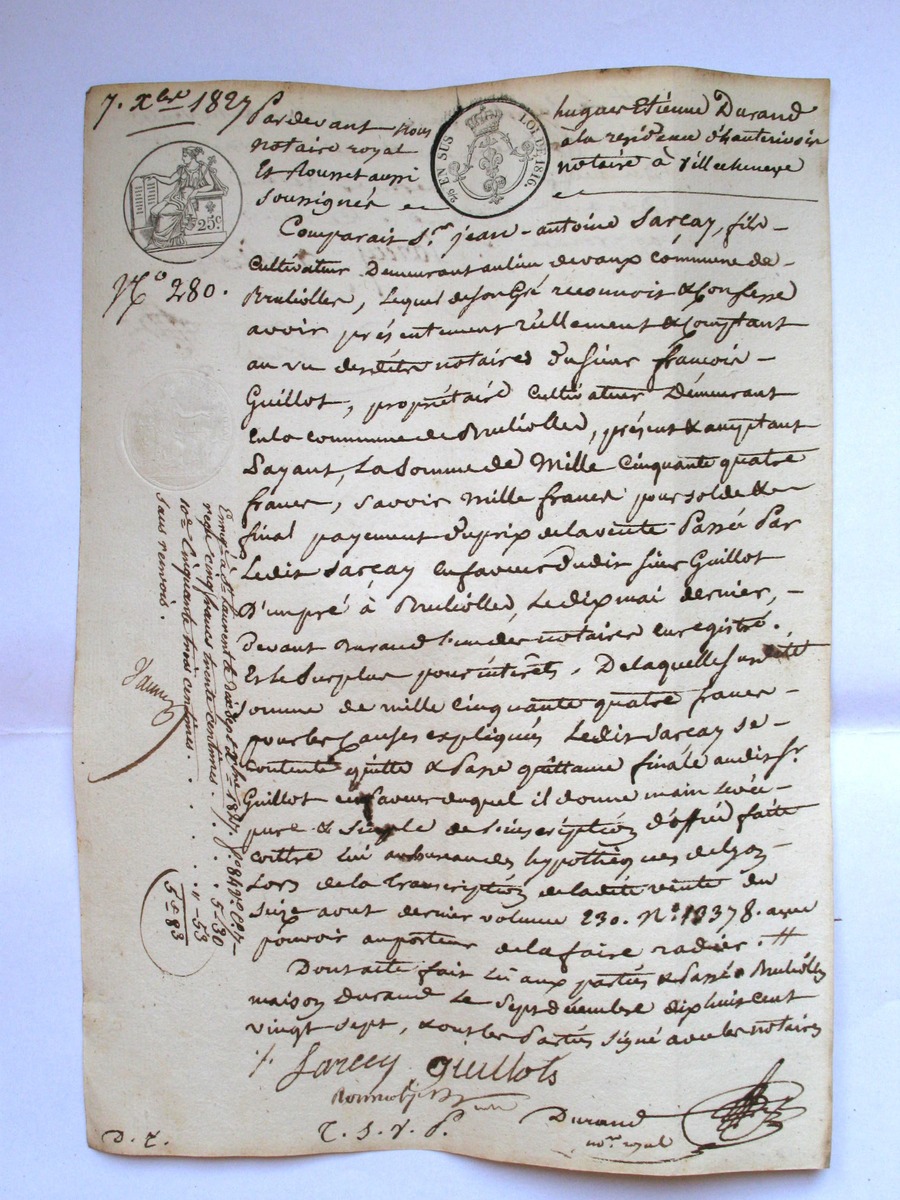 7. Xbre 1827
Pardevant nous hugues Etienne Durand
notaire royal à la residence d'hauterivoire
Et Rousset aussi notaire à villecheneve
soussignés
EN SUS
LOI DE 1816
25c.
No 280.
Comparait Sr. jean-antoine Sarcay, fils
cultivateur Demeurant au lieu de vaux commune de
Brullioles, lequel de son Gré reconnoit & Confesse
avoir présentement réellement & Comptant
au vu desdits notaires du sieur francois
Guillot, propriétaire Cultivateur Demeurant
en la commune de Brullioles, présent & acceptant
Payant, la Somme de Mille Cinquante quatre
francs, savoir mille francs pour solde &
final payement du prix de la vente Passée Par
Ledit Sarcay en faveur dudit sieur Guillot
D'un pré à Brullioles, Le dix mai dernier,
Devant Durand l'un des notaires enregistré.
Et le Surplus pour intérêts. De laquelle susdite
somme de mille cinquante quatre francs
pour les Causes expliqués Ledit Sarcay se
Contente quitte & Passe quittance finale audit Sr.
Guillot en faveur duquel il donne main levée
pure & simple de l'inscription d'office faite
contre lui au bureau des hypothèques de Lyon
Lors de la transcription de ladite vente du
seize aout dernier volume 230. No 18378. avec
pouvoir au porteur de la faire radier. //
Dont acte fait lu aux parties & Passé à Brullioles
maison Durand Le Sept décembre dix huit cent
vingt sept, & ont les Parties signé avec les notaires
Sarcey Guillots
Durand
nore. royal
D. R.
T. S. V. P.
Enregé. à St. Laurent le Xbre 1827. fo 84
reçu cinq francs trente centimes. 5-30
10e Cinquante trois centimes. " - 53
sans renvois.
5-83